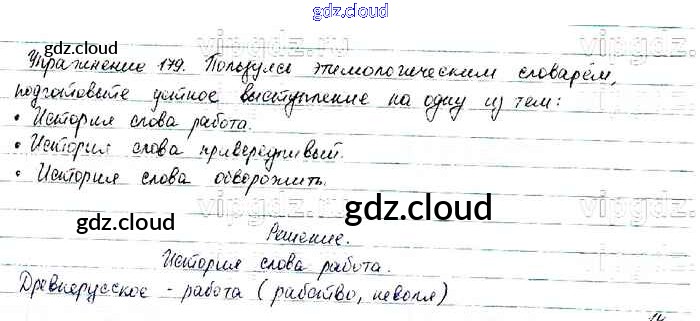 gdz.cloud
gdz.cloud vipgdz.ru vipgdz.ru
Упражнение 179. Пользуясь этимологическим словарём,
подготовьте устное выступление на одну из тем:
• История слова работа.
• История слова привередливый.
• История слова обворожить.
vipgdz.ru vipgdz.ru
gdz.cloud gdz.cloud
Решение.
История слова работа.
Древнерусское - работа (рабство, неволя)